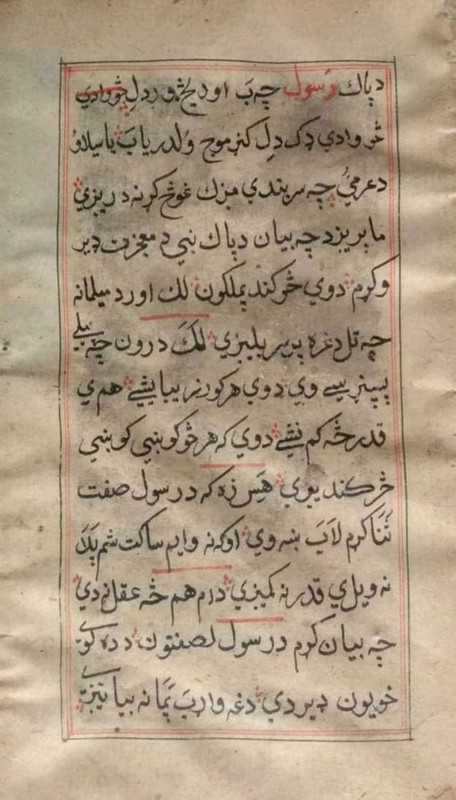 د پاک رسول چه ب اوریځ په ور دل څو وادي
څو وادي ډک دل کنړ موج ولدریاب یا سیلاو
د عرمي چه سربندي مزک غوڅ کړنه د ریزي
ما پریږد چه بیان د پاک نبي د معجزت ډیر
وکړم دوي څرکند پملکون لک اور د میلمانه
چه تل د غره پرسر بلیزي لک درون چه بیلي
سپینر سے وي دوي هرکورز زیبا یشے هم ي
قدر څه کم نشے دوي که هر څوکوښي کوښي
څرکند یوي هس زه که د رسول صفت
ثنا کړم لاب ښه وي اوکه نه وایم ساکت شم پدا
نه ویلي قدر نه کمیږي دام هم څه عقل نه دي
چه بیان کړم د رسول لصفتون د ده کو
خویون ډیر دي دغه وارب تما نه بیانیږي